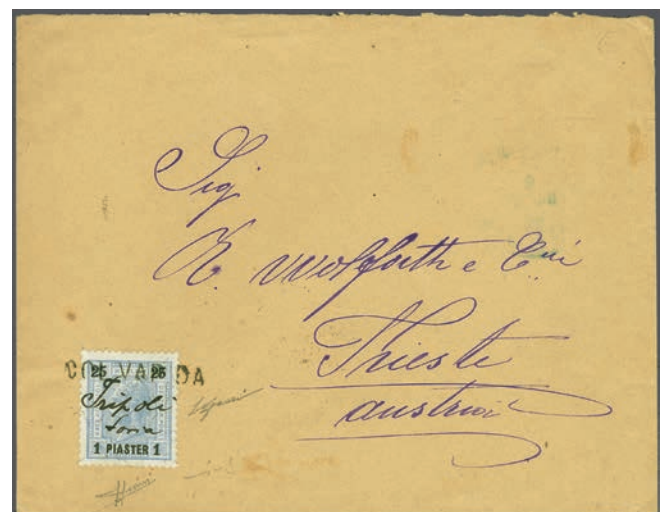 Sig
E. Wolffarth e Cni
Trieste
Austria
COL VAPOR DA
25 25
Tripoli
Soria
1 PIASTER 1